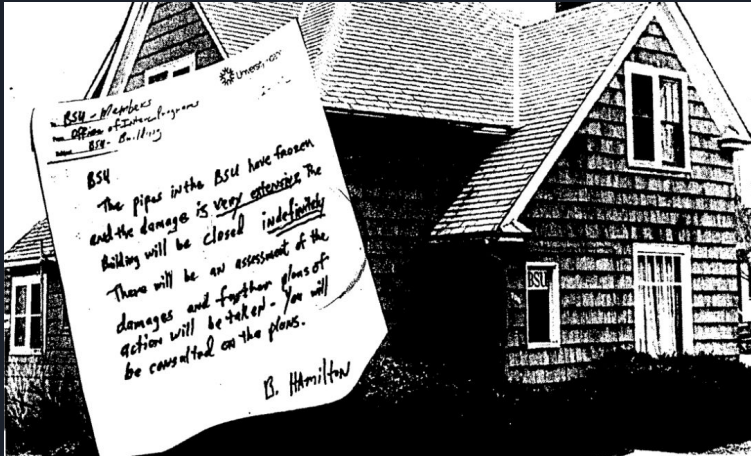 University
To: BSU - Members
From: Office of Inter. Programs
BSU - Building
BSU
The pipes in the BSU have frozen
and the damage is very extensive. The
Building will be closed indefinitely
There will be an assessment of the
damages and further plans of
action will be taken - You will
be consulted on the plans.
B. HAmilton
BSU